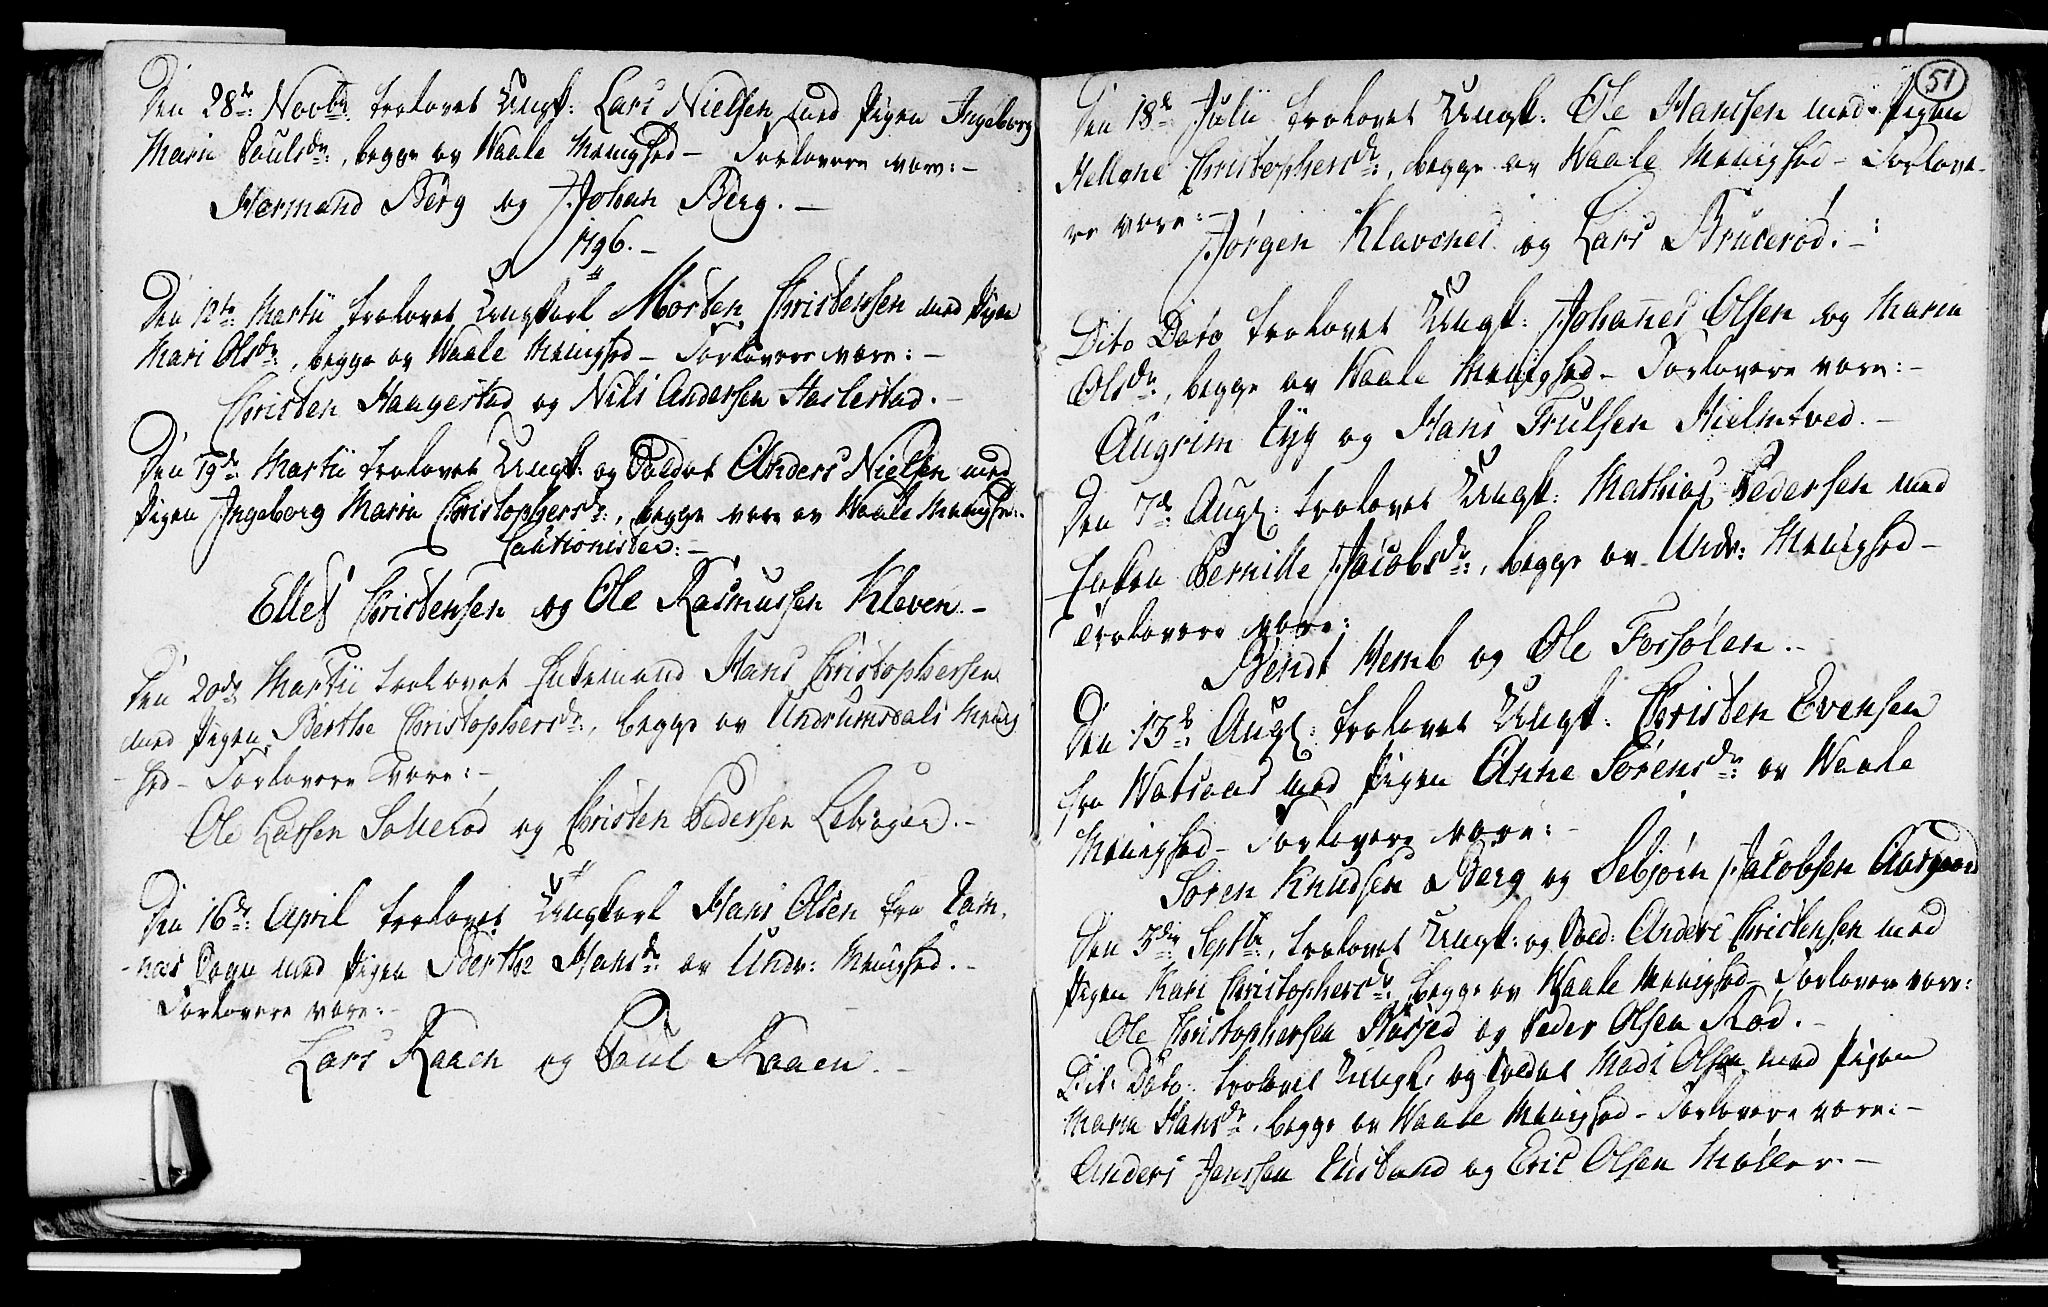 Den 28de: Novbr: trolovet Ungk: Lars Nielsen med Pigen Ingeborg
Marie Poulsdr:, begge av Waale Menighed – Forlovere vare: –
Hermand Berg og Johan Berg. –
1796. –
Den 12te: Martii trolovet Ungkarl Morten Christensen med Pigen
Mari Olsdr:, begge av Waale Menighed – Forlovere vare: –
Christen Haugestad og Nils Andersen Haslestad. –
Den 19de: Martii trolovet Ungk: og Soldat Anders Nielsen med
Pigen Ingeborg Maria Christophersdr:, begge vare av Waale Menighe:
Cautionister: –
Ellef Christensen og Ole Rasmussen Kleven. –
Den 20de: Martii trolovet Enkemand Hans Christophersen
med Pigen Berthe Christophersdr:, begge av Undrumsdals Menig
– hed – Forlovere vare: –
Ole Larsen Sollerød og Christen Pedersen –
Den 16de: April trolovet Ungkarl Hans Olsen fra Ram,
– næs Sogn med Pigen Berthe Hansdr: av Undr: Menighed. –
Forlovere vare: –
Lars Raaen og Poul Raaen. –
51
Den 18de: Julii trolovet Ungk: Ole Hansen med Pigen
Hellene Christophersdr:, begge av Waale Menighed – Forlove-
re vare: –
Jørgen Klavenes og Lars Bruserød. –
Dito Dato trolovet Ungk: Johanes Olsen og Maria
Olsdr:, begge av Waale Menighed – Forlovere vare: –
Augrim og Hans Trulsen Hielmtved. –
Den 7de: Aug: trolovet Ungk: Mathias Pedersen med
Enken Pernille Jacobsdr:, begge av Undr: Menighed –
Forlovere vare:
Bendt Hemb og Ole Forsølen. –
Den 13de: Aug: trolovet Ungk: Christen Evensen
fra Watsaas med Pigen Anne Sørensdr: av Waale
Menighed – Forlovere vare: –
Søren Knudsen Berg og Sebjørn Jacobsen Aasgaard
Den 3die: Septbr:, trolovet Ungk: og Sold: Anders Christensen med
Pigen Kari Christophersdr: begge av Waale Menighed – Forlovere vare:
Ole Christophersen og Peder Olsen Rød. –
Dit: Dato: trolovet Ungk: og Soldat Mads Olsen med Pigen
Maria Hansdr:, begge av Waale Menighed – Forlovere vare: –
Anders Jenssen og Eric Olsen Møller. –